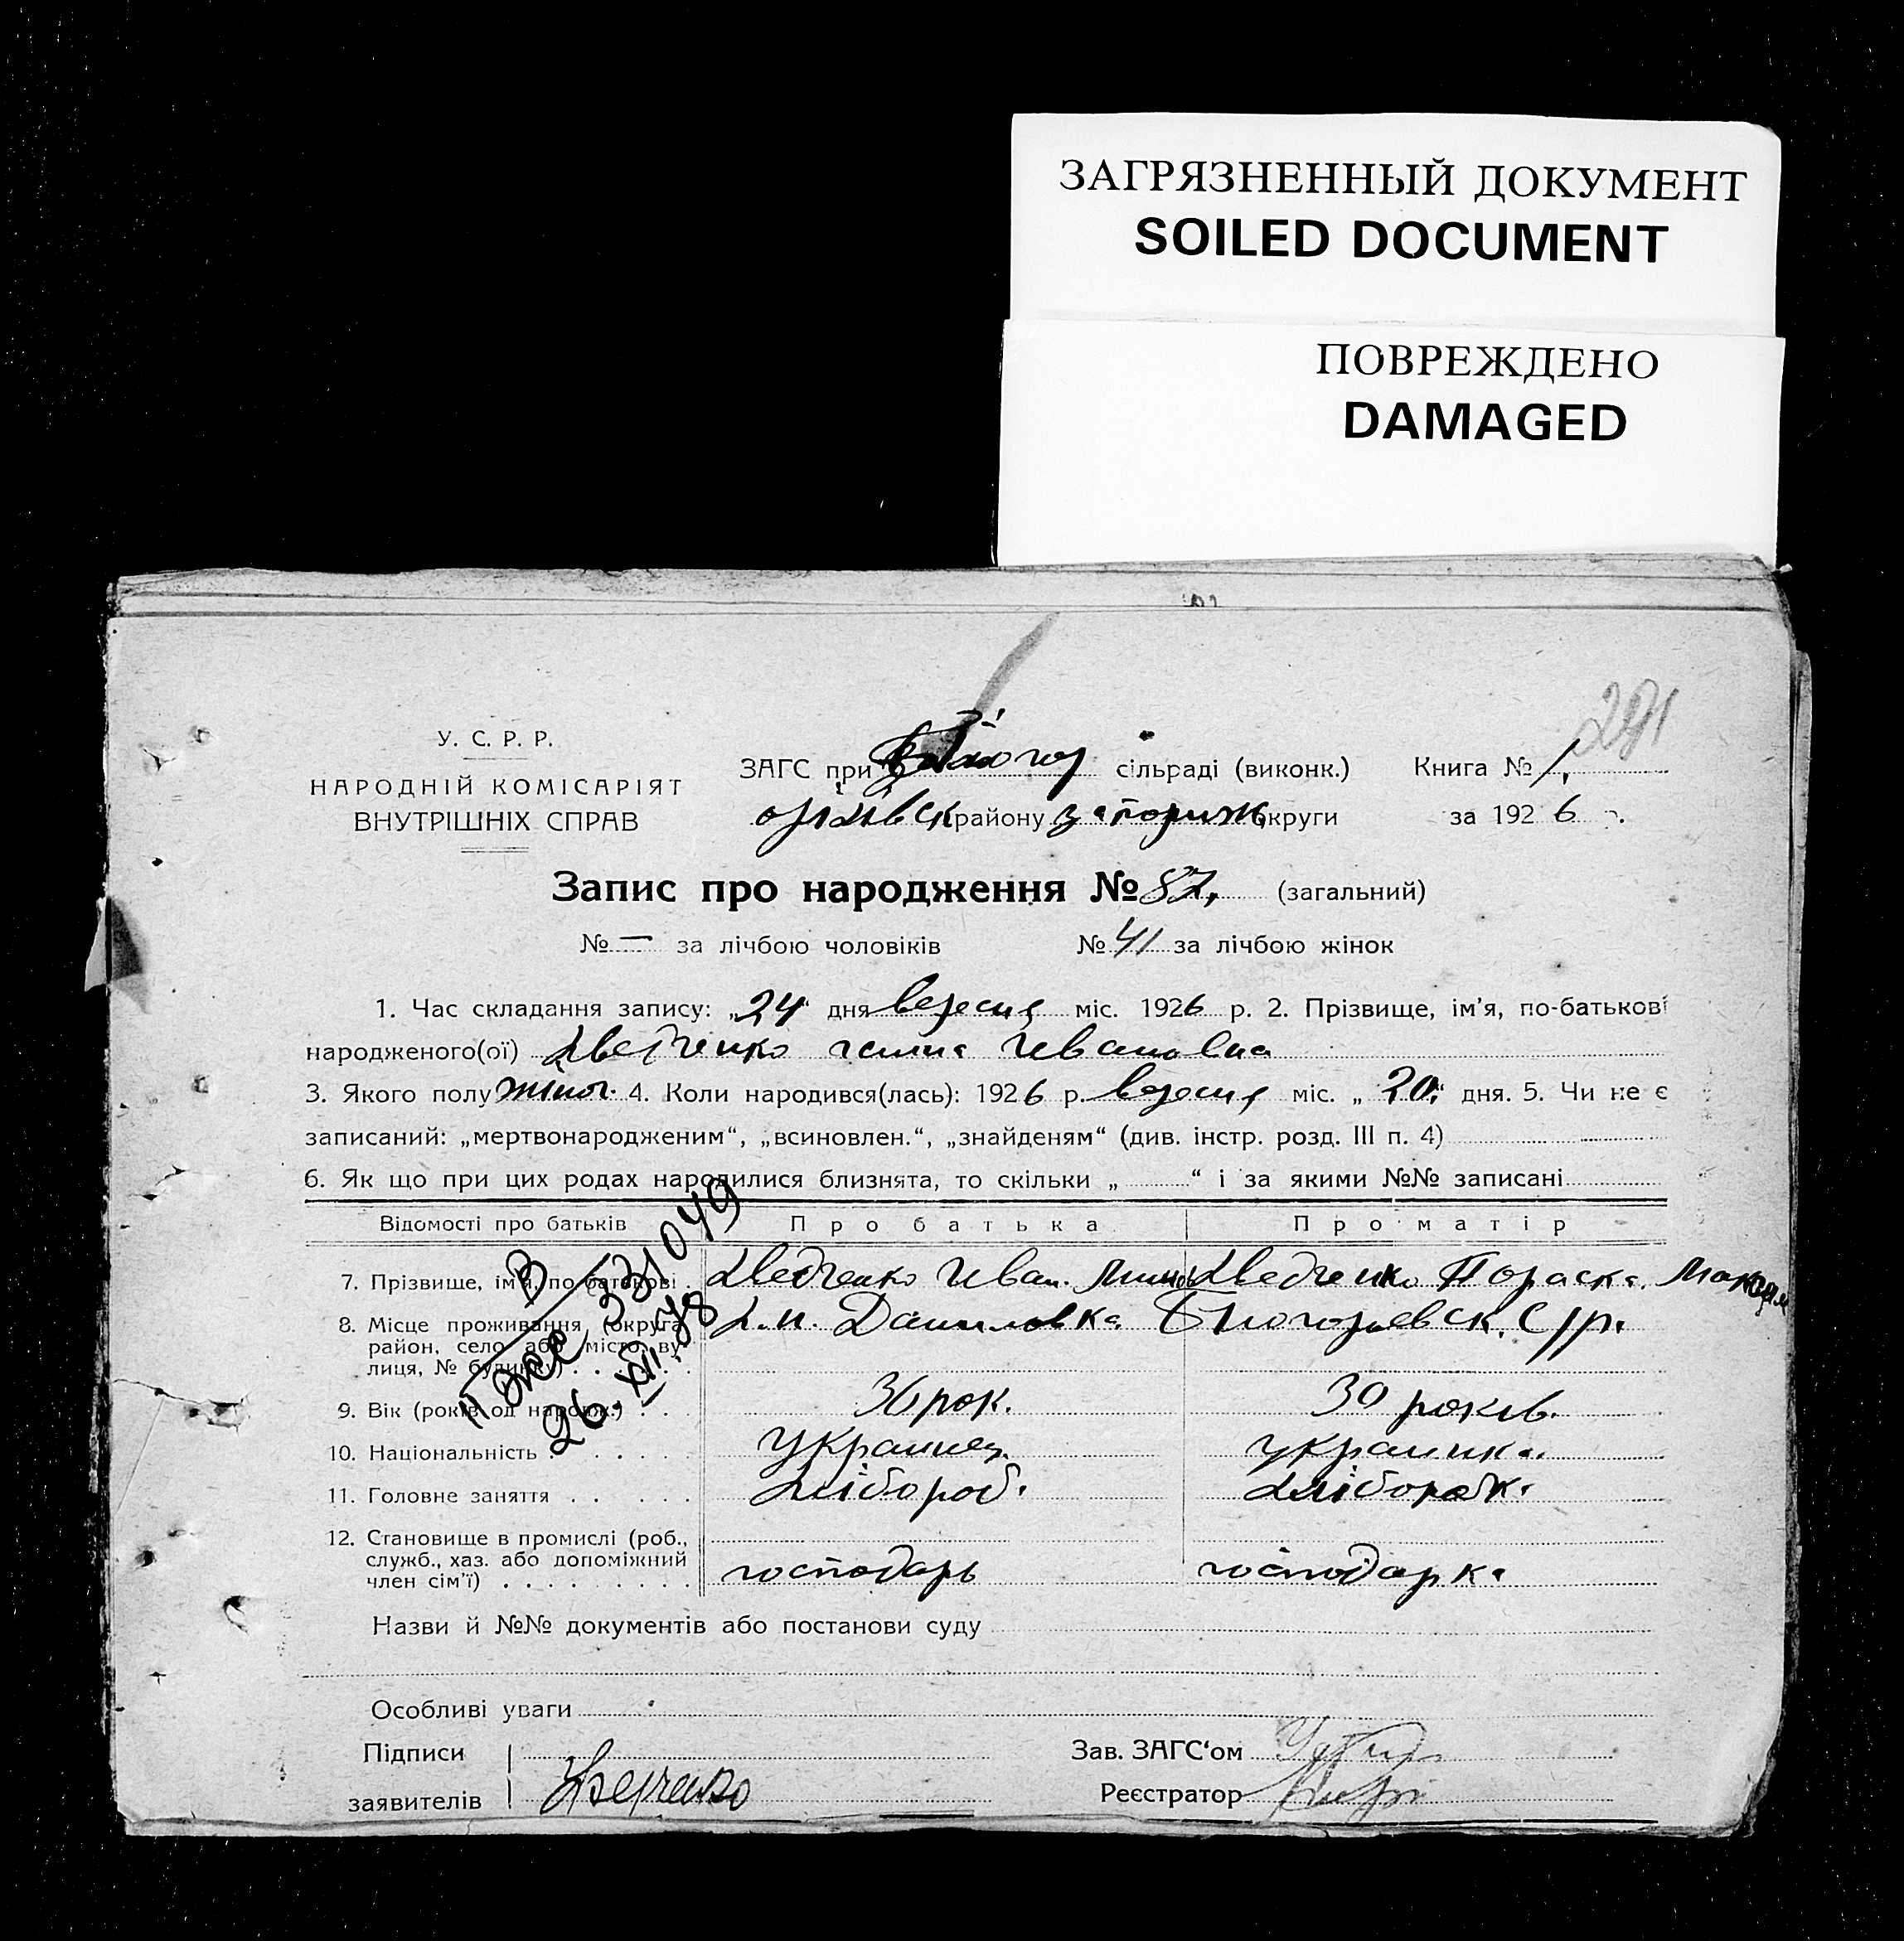 ЗАГРЯЗНЕННЫЙ ДОКУМЕНТ
SOILED DOCUMENT
ПОВРЕЖДЕНО
DAMAGED
291
У. С. Р. Р.
НАРОДНІЙ КОМІСАРІЯТ
ВНУТРІШНІХ СПРАВ
ЗАГС при сільраді (виконк.) Книга № 1,
оріхівськ району запориж округи за 1926 р.
Запис про народження № 87, (загальний)
№ — за лічбою чоловіків № 41 за лічбою жінок
1. Час складання запису: „24“ дня вересня міс. 1926 р. 2. Прізвище, ім'я, по-батькові
народженого(ої) Ивановна
3. Якого полу жіноч. 4. Коли народився(лась): 1926 р. вересня міс. „20“ дня. 5. Чи не є
записаний: „мертвонародженим“, „всиновлен.“, „знайденям“ (див. інстр. розд. III п. 4)
6. Як що при цих родах народилися близнята, то скільки „ “ і за якими №№ записані
Відомості про батьків Про батька Про матір
7. Прізвище, ім'я, по-батькові Иван. Параска
8. Місце проживання (округа, х. Даниловка
район, село або місто, ву-
лиця, № будинку)
9. Вік (років од народж.) 36 рок. 30 років.
10. Національність украинец украинка.
11. Головне заняття хлібороб. хліборобк.
12. Становище в промислі (роб.,
служб., хаз. або допоміжний
член сім'ї) господарь господарка
II ЖС 331049
26.XII.78
Назви й №№ документів або постанови суду
Особливі уваги
Підписи Зав. ЗАГС'ом
заявителів Реєстратор